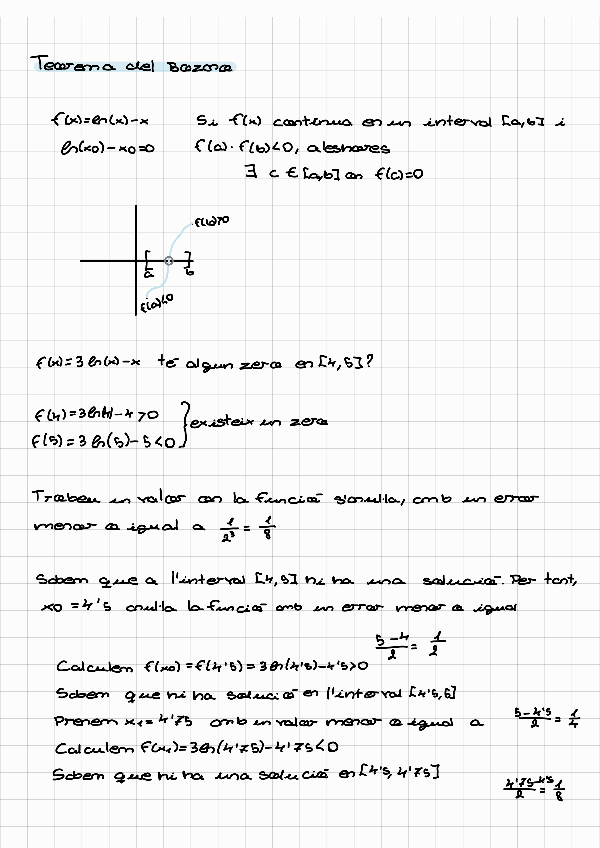 Teorema del Bolzano
f(x)=ln(x)-x Si f(x) contínua en un interval [a,b] i
ln(x0)-x0=0 f(a)·f(b)<0, aleshores
∃ c ∈ [a,b] on f(c)=0
f(b)>0
[ ]
a b
f(a)<0
f(x)=3ln(x)-x té algun zero en [4,5]?
f(4)=3ln(4)-4>0
} existeix un zero
f(5)=3ln(5)-5<0
Trobeu un valor on la funció s'anul·la, amb un error
menor o igual a 1/2³ = 1/8
Sabem que a l'interval [4,5] hi ha una solució. Per tant,
x0=4'5 anul·la la funció amb un error menor o igual
5-4/2 = 1/2
Calculem f(x0)=f(4'5)=3ln(4'5)-4'5>0
Sabem que hi ha solució en l'interval [4'5,5]
Prenem x1=4'75 amb un valor menor o igual a 5-4'5/2 = 1/4
Calculem f(x1)=3ln(4'75)-4'75<0
Sabem que hi ha una solució en [4'5, 4'75] 4'75-4'5/2 = 1/8